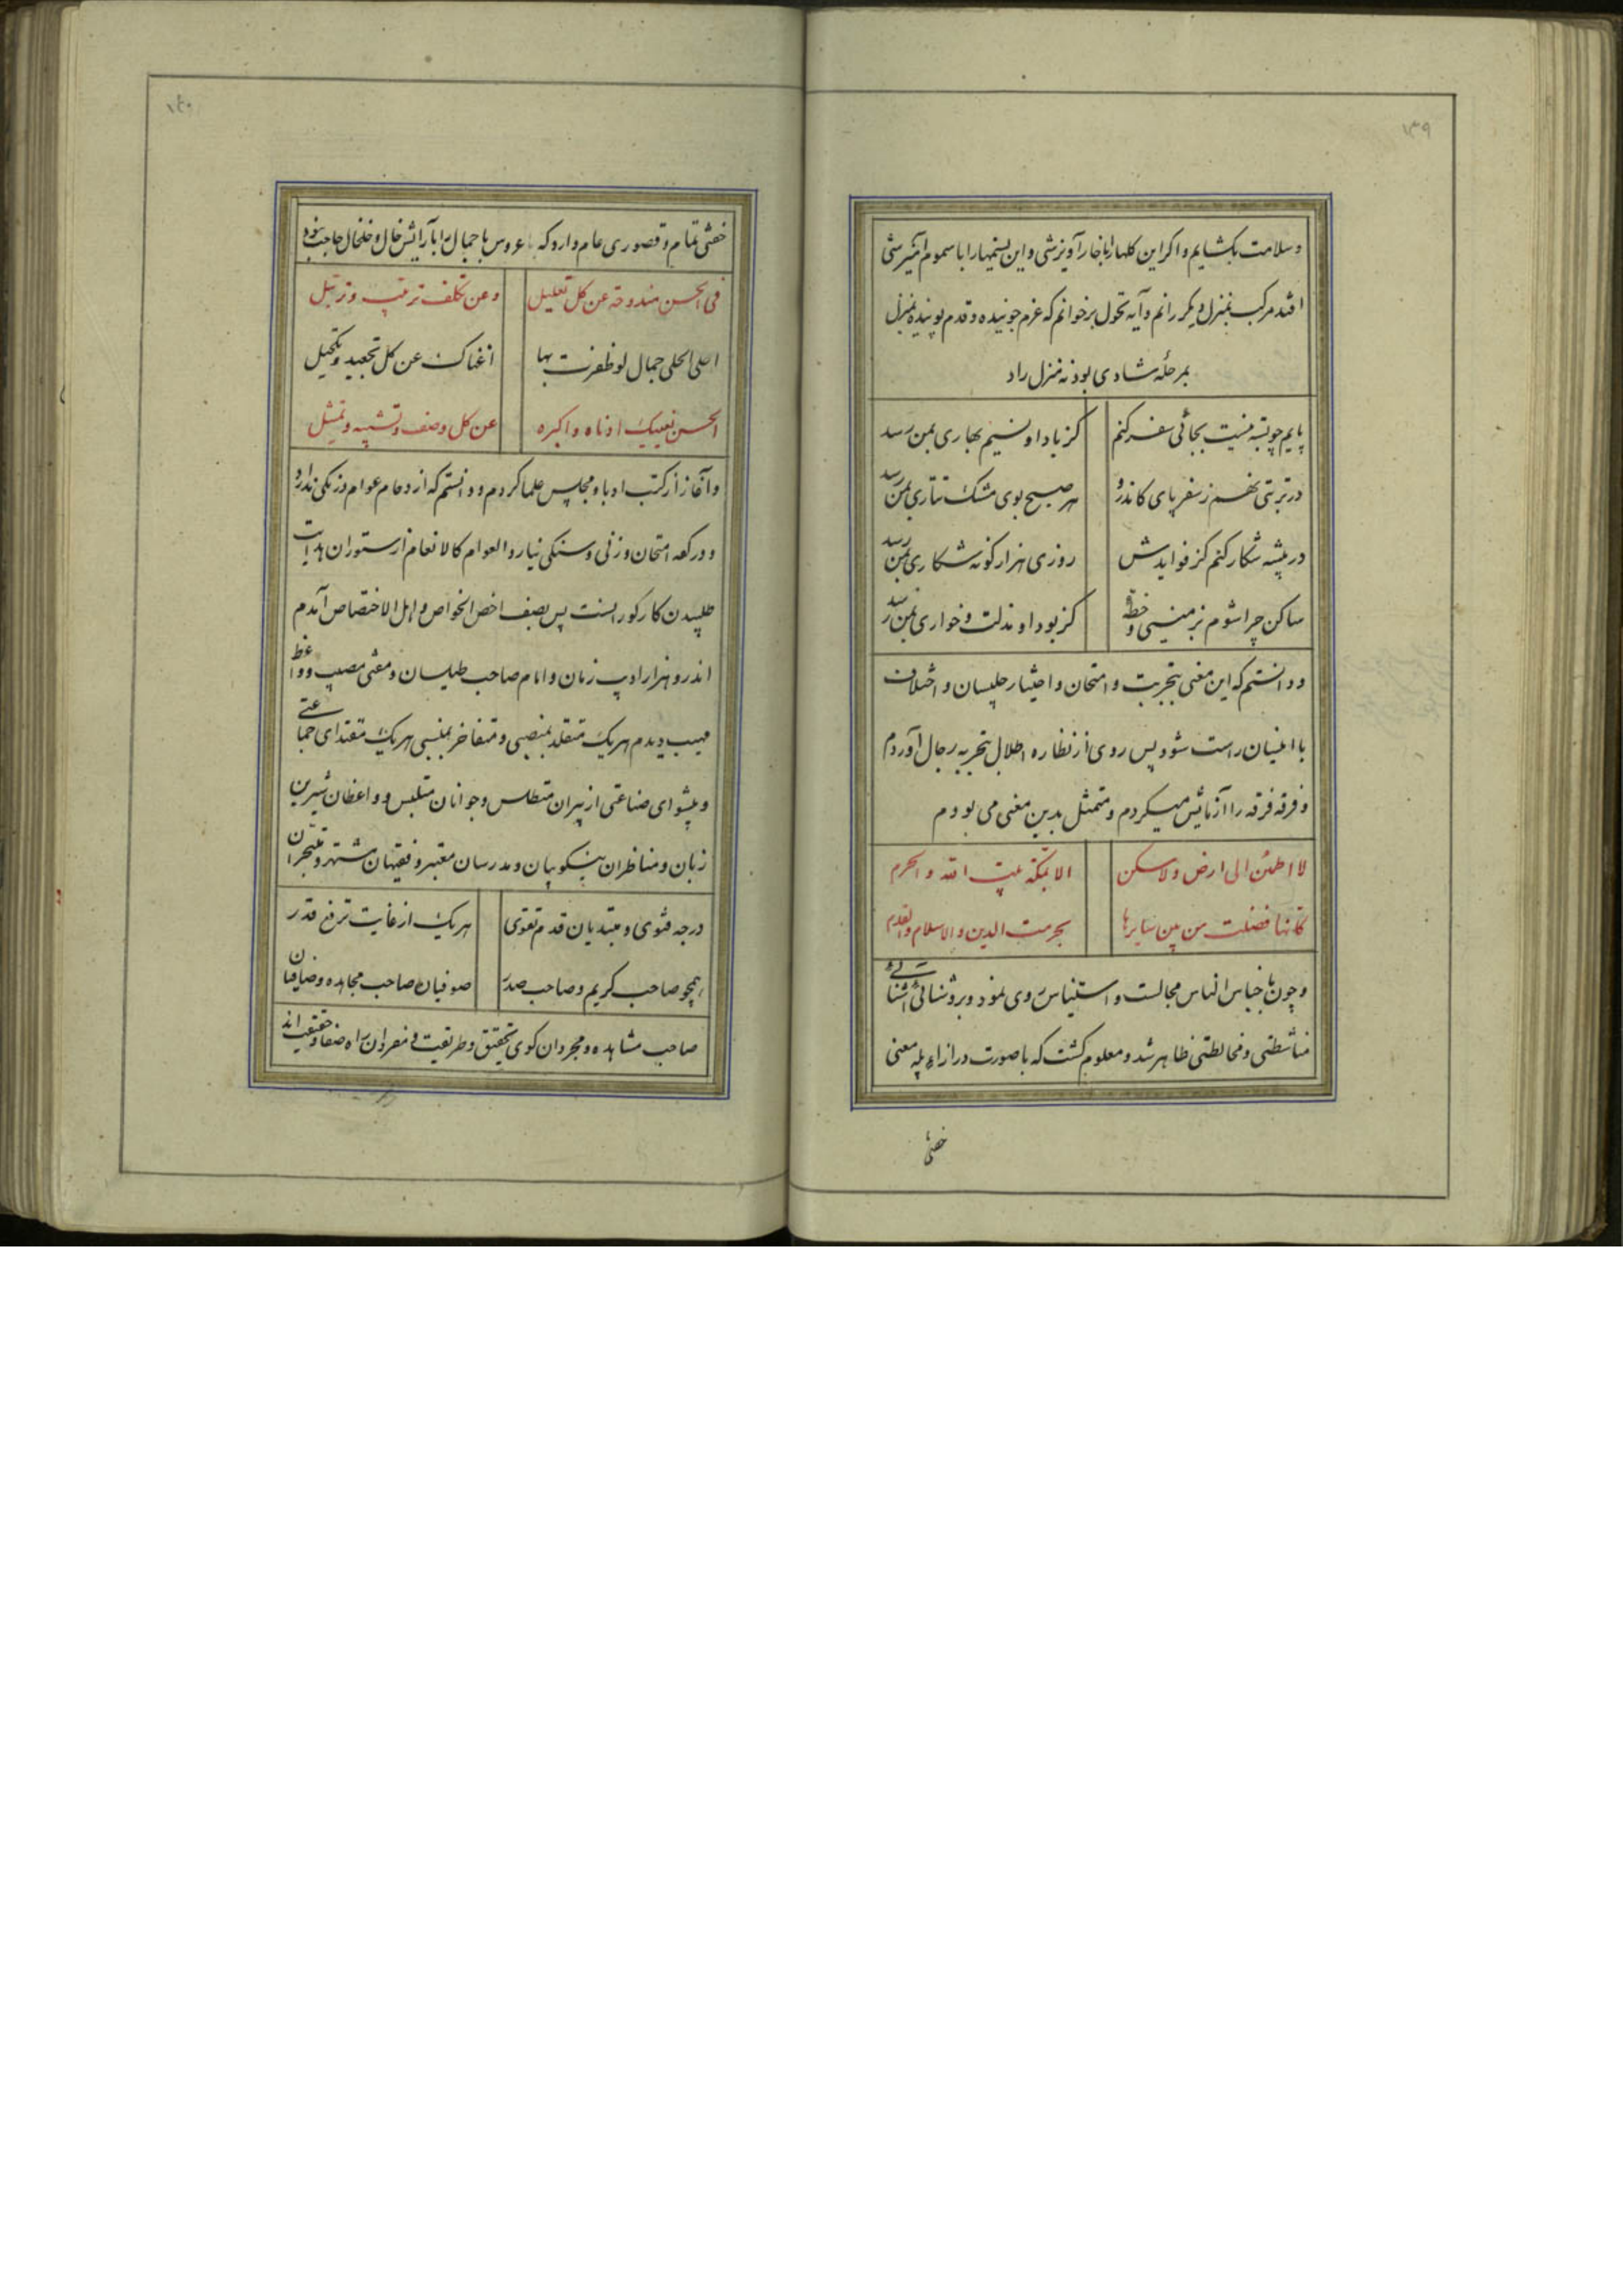 ۱۳۹
وسلامت بکشایم و اکر این کلهارا باخار آویزشی و این نسیمهارا با سموم آمیزشی
افتد مرکب بمنزل دیکر رانم و آیه تحول برخوانم که عزم جوینده و قدم پوینده بمنزل
بمرحله شادی بود نه منزل راد
پایم چو بسته نیست بجائی سفر کنم کز باد او نسیم بهاری بمن رسد
در تربتی نهم ز سفر پای کاندرو هر صبح بوی مشک تتاری بمن رسد
در بیشه شکار کنم کز فوایدش روزی هزار کونه شکاری بمن رسد
ساکن چرا شوم بزمینی و خطه کز بود او مذلت و خواری بمن رسد
و دانستم که این معنی بتجربت و امتحان و اختیار جلیسان و اختلاف
با انیسان راست شود پس روی از نظاره اطلال بتجربه رجال آوردم
و فرقه فرقه را آزمایش میکردم و متمثل بدین معنی می بودم
لا اطمئن الی ارض ولا سکن الا بمکة بیت الله والحرم
کانها فضلت من بین سایرها بحرمت الدین والاسلام والقدم
و چون با جناس الناس مجالست و استیناس روی نمود و بروشنائی آشنائی
مناشطتی و مخالطتی ظاهر شد و معلوم کشت که با صورت در ازاء پله معنی
خفتی
۱۴۰
خفتی تمام و قصوری عام دارد که عروس با جمال را بآرایش خال و خلخال حاجت نبود
فی الحسن مندوحة عن کل تعلیل وعن تکلف ترتیب و ترتیل
احلی الحلی جمال لو ظفرت بها اغناک عن کل تجعید وتکحیل
الحسن یغنیک ادناه واکبره عن کل وصف وتشبیه وتمثیل
و آغاز از کتب ادبا و مجالس علما کردم و دانستم که ازدحام عوام در یکی ندارد
و در کفه امتحان وزنی و سنکی نیارد و العوام کالانعام از ستوران هدایت
طلبیدن کار کورانست پس بصف اخص الخواص و اهل الاختصاص آمدم
اندرو هزار ادیب زمان و امام صاحب طیلسان و مفتی مصیب و واعظ
مهیب دیدم هریک متقلد بمنصبی و متفاخر بمنسبی هریک مقتدای جماعتی
و پیشوای صناعتی از پیران متطلس و جوانان متلبس و واعظان شیرین
زبان و مناظران نیکو بیان و مدرسان معتبر و فقیهان مشتهر و متبحران
درجه فتوی و مبتدیان قدم تقوی هریک از غایت ترفع قدر
همچو صاحب کریم و صاحب صدر صوفیان صاحب مجاهده و صافیان
صاحب مشاهده و مجردان کوی تحقیق و طریقت و مفردان راه صفا و حقیقت اند